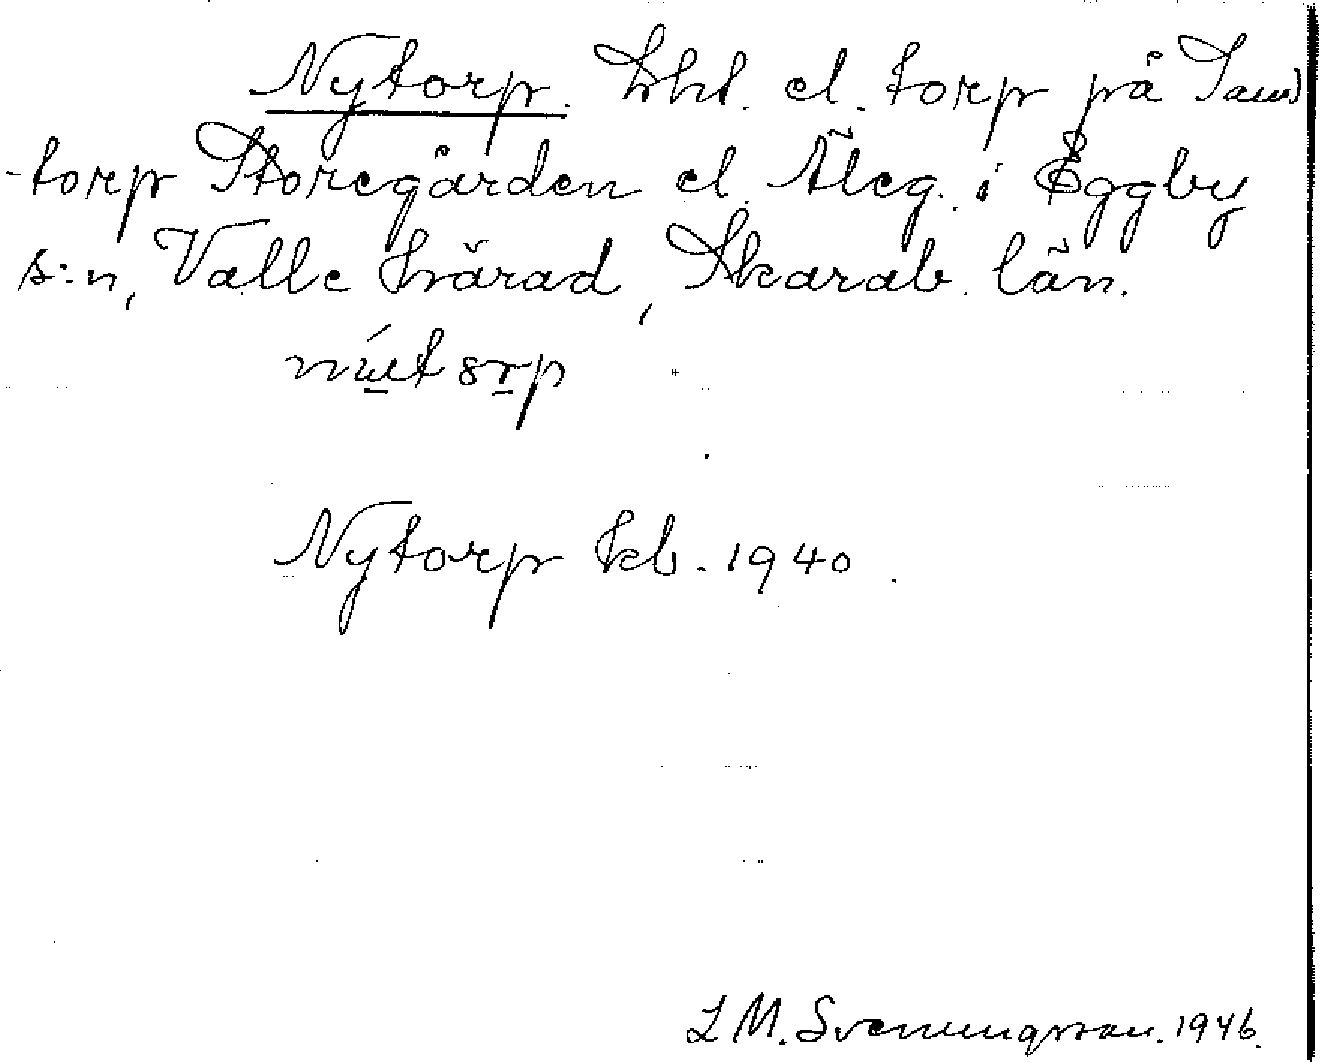 Nytorp. Lht. el. torp på Sand
-torp Storegården el. Äleg. i Eggby
s:n, Valle härad, Skarab. län.
Nytorp kb. 1940.
L M. Svenungsson. 1946.